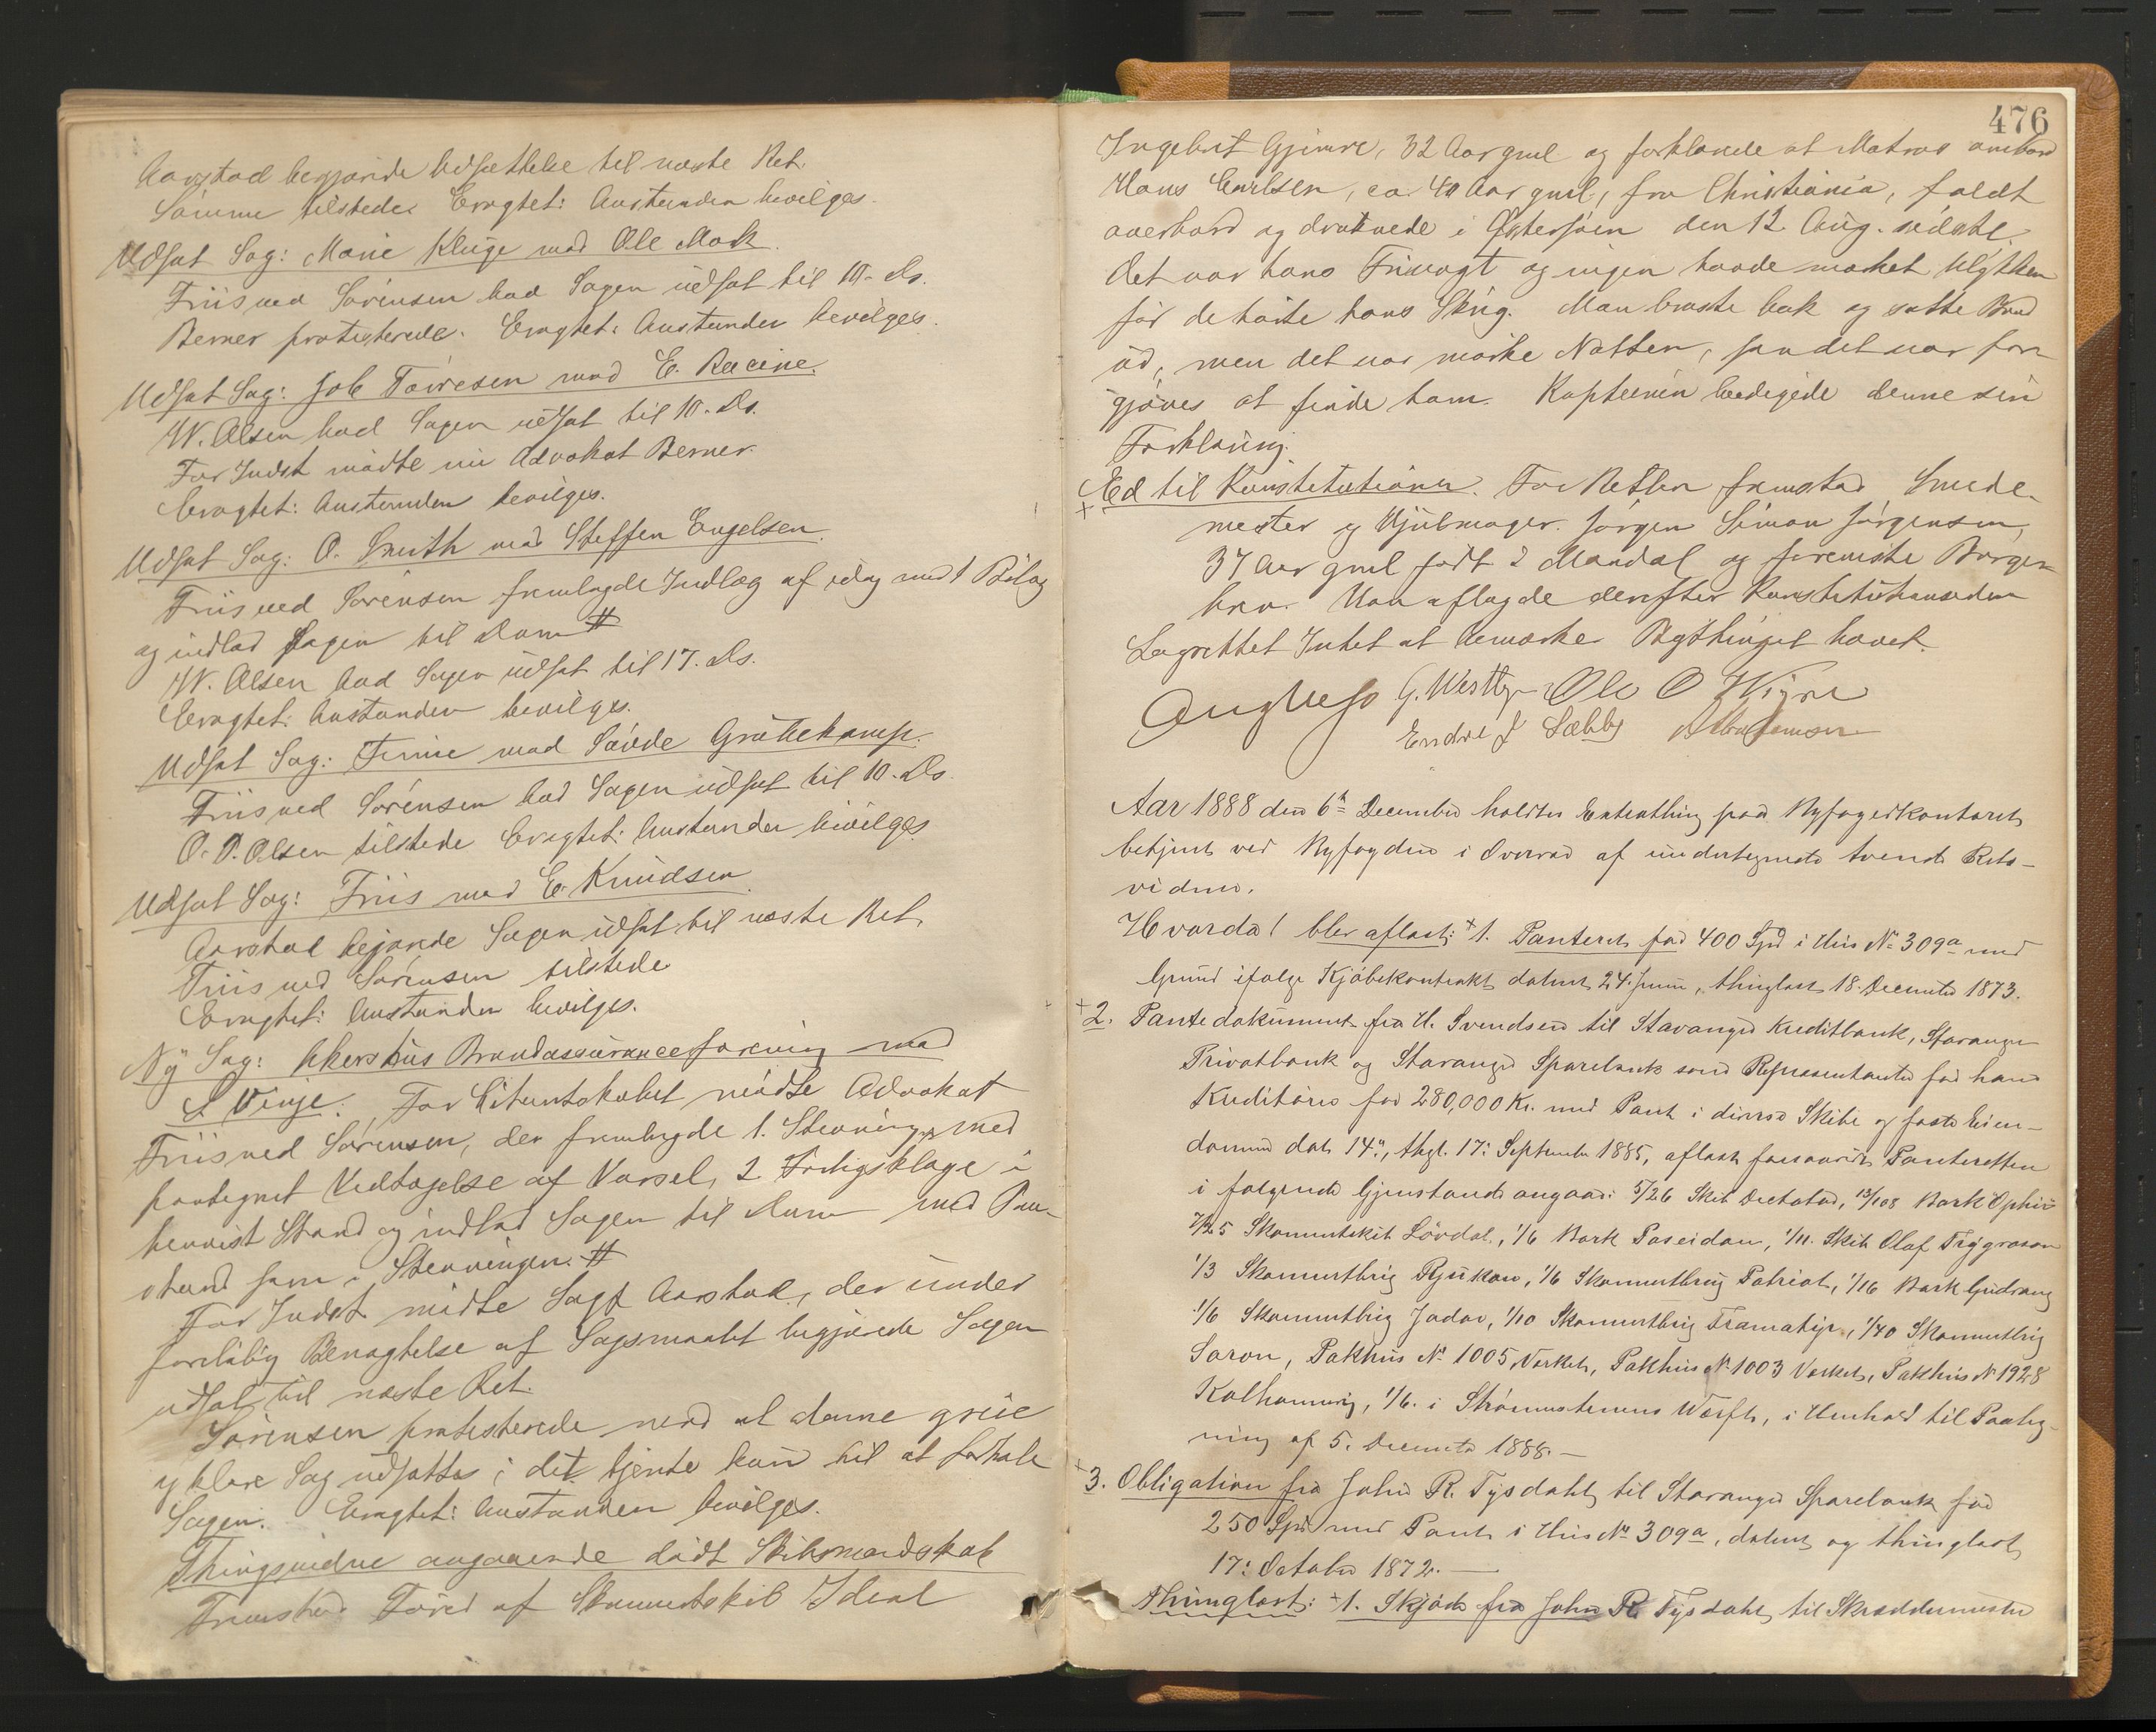 Aarstad begjærede Udsættelse til næste Ret.
Sömme tilstede. Eragtet: Anstanden bevilges.
Udsat Sag: Marie Kluge mod Ole Mok.
Friis ved Sörensen bad Sagen udsat til 10. Ds.
Berner protesterede. Eragtet: Anstanden bevilges.
Udsat Sag: Job Törresen mod E. Racine.
W. Olsen bad Sagen udsat til 10. Ds.
For Indst. mödte nu Advokat Berner.
Eragtet: Anstanden bevilges.
Udsat Sag: O. Smith mod Steffen Engelsen.
Friis ved Sörensen fremlagde Indlæg af idag med 1 Bilag
og indlod Sagen til Dom #
W. Olsen bad Sagen udsat til 17. Ds.
Eragtet: Anstanden bevilges.
Udsat Sag: Finne mod Grüttekamp.
Friis ved Sörensen bad Sagen udsat til 10. Ds.
O. P. Olsen tilstede Eragtet: Anstanden bevilges
Udsat Sag: Friis mod E. Knudsen
Aarstad begjærede Sagen udsat til næste Ret.
Friis ved Sörensen tilstede
Eragtet: Anstanden bevilges.
Ny Sag: Akershus Brandassuranceforening mod
S. Vinje. For Citantskabet mödte Advokat
Friis ved Sörensen, der fremlagde 1. Stevning med
paategnet Vedtagelse af Varsel, 2 Forligsklage i
henvist Stand og indlod Sagen til Dom med Paa-
stand som i Stevningen. #
For Indst. mödte Sagf. Aarstad, der under
foreløbig Benægtelse af Sagsmaalet begjærede Sagen
udsat til næste Ret.
Sörensen protesterede mod at denne greie
og klare Sag udsattes; det tjente kun til at forhale
Sagen. Eragtet: Anstanden bevilges.
Thingsvidne angaaende dödt Skibsmandskab
Fremstod Förer af Skonnertskib Ideal
476
Ingebret Gjemre, 32 Aar gml og forklarede at Matros ombord
Hans Carlsen, ca. 40 Aar gml, fra Christiania, faldt
overbord og druknede i Östersöen den 12 Aug. sidstl.
Det var hans Frivagt og ingen havde mærket Ulykken
för de hörte hans Skrig. Man braste bak og satte Baad
ud, men det var mörke Natten, saa det var for-
gjæves at finde ham. Kapteinen beedigede denne sin
Forklaring.
Ed til Konstitutionen. For Retten fremstod Smede-
mester og Hjulmager Jörgen Simon Jörgensen,
37 Aar gml födt i Mandal og foreviste Borger-
brev. Han aflagde derefter Konstitutionseden
Lagrettet Intet at bemærke Bythinget hævet.
G. Westby Ole O
Endre J Sæbby
Aar 1888 den 6te December holdtes Extrathing paa Byfogedkontoret
betjent ved Byfogden i Overvær af undertegnede tvende Rets-
vidner.
Hvorda! blev aflæst: 1. Panteret for 400 Spd i Hus No 309a med
Grund ifølge Kjöbekontrakt dateret 24. Juni, thinglæst 18. December 1873.
2. Pantedokument fra H. Svendsen til Stavanger Kreditbank, Stavanger
Privatbank og Stavanger Sparebank som Repræsentanter for hans
Kreditorer for 280,000 Kr. med Pant i diverse Skibe og faste Eien-
domme dat. 14de, thgl. 17. September 1885, aflæst forsaavidt Panteretten
i følgende Gjenstande angaar: 5/26 Skib Dictator, 13/108 Bark Ophir
7/25 Skonnertskib Lövdal, 1/6 Bark Poseidon, 1/11. Skib Olaf Trygvason
1/3 Skonnertbrig Rjukan, 1/6 Skonnertbrig Patriot, 1/16 Bark Gudrang
1/6 Skonnertbrig Jadar, 1/10 Skonnertbrig, 1/40 Skonnertbrig
Saron, Pakhus No 1005 Værket, Pakhus No 1003 Værket, Pakhus No 1928
Kalhammer, 1/6. i Strömstenens Værft, i Henhold til Paateg-
ning af 5. December 1888. —
3. Obligation fra John R. Tysdahl til Stavanger Sparebank for
250 Spd med Pant i Hus No 309a, dateret og thinglæst
17: October 1872. —
Thinglæst: 1. Skjöde fra John R. Tysdahl til Skræddermester